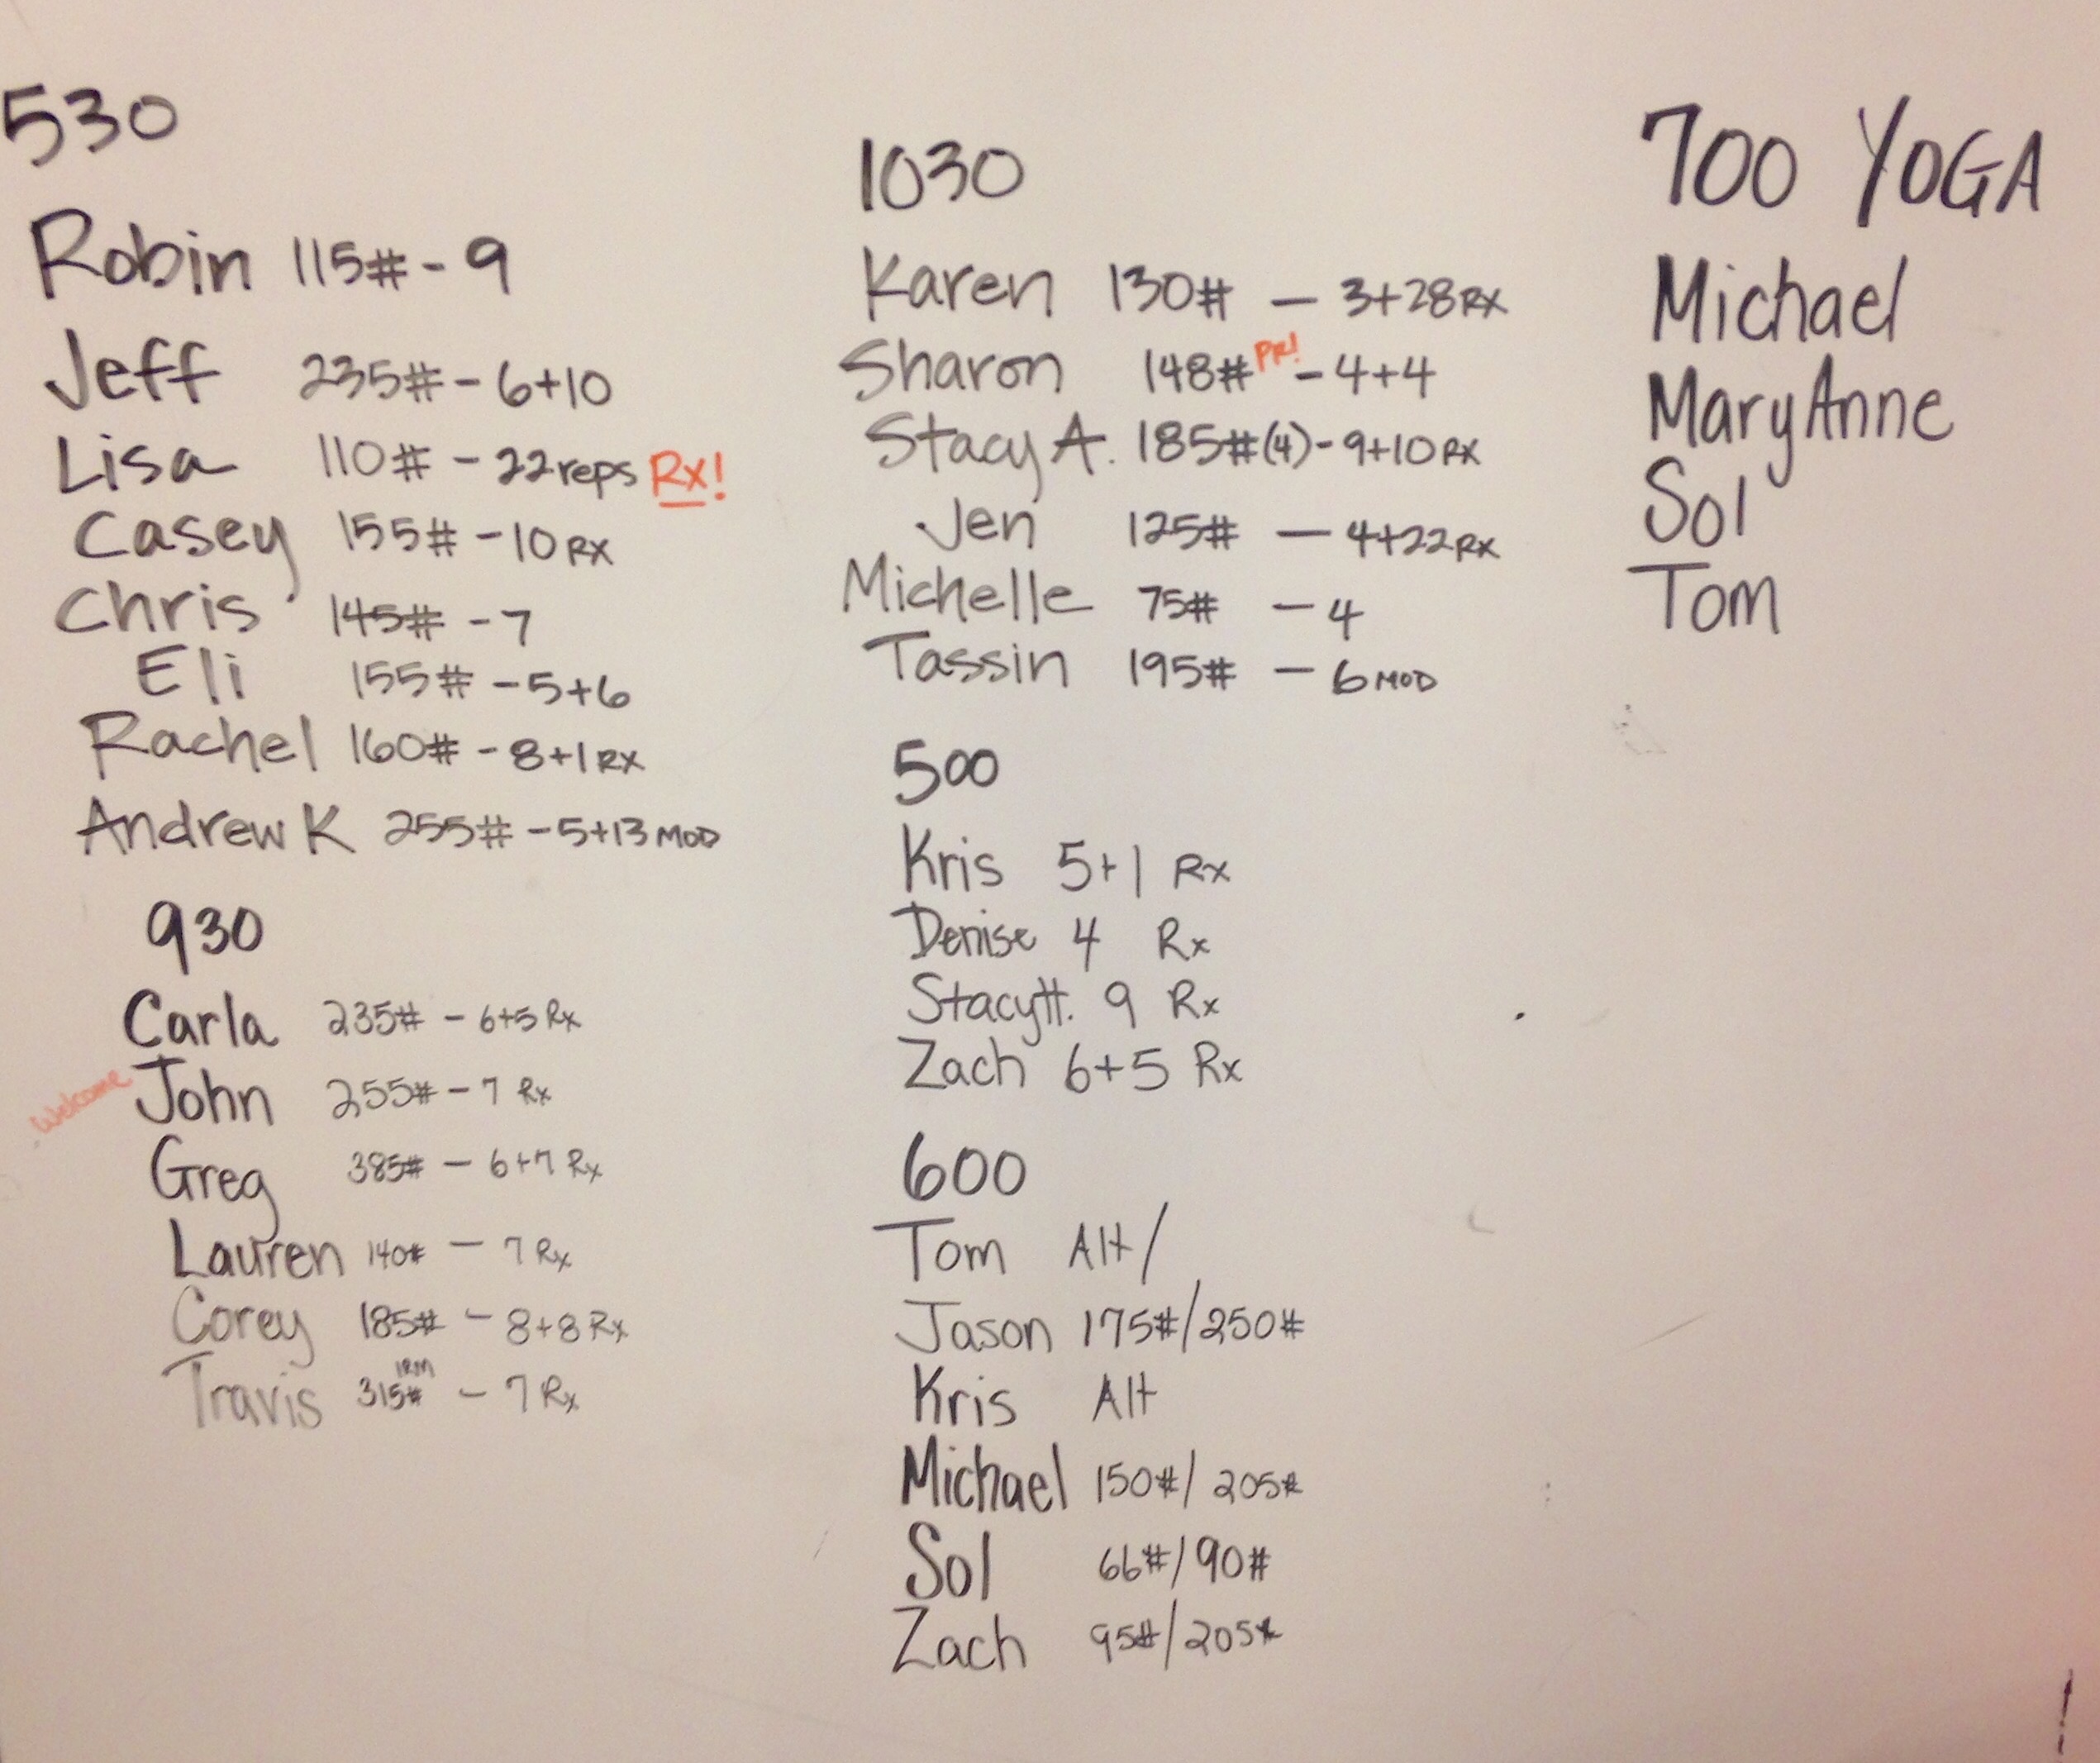 530
Robin 115# - 9
Jeff 235# - 6+10
Lisa 110# - 22 reps Rx!
Casey 155# - 10 RX
Chris 145# - 7
Eli 155# - 5+6
Rachel 160# - 8+1 RX
Andrew K 255# - 5+13 MOD
930
Carla 235# - 6+5 Rx
welcome John 255# - 7 Rx
Greg 385# - 6+7 Rx
Lauren 140# - 7 Rx
Corey 185# - 8+8 Rx
Travis 315# 1RM - 7 Rx
1030
Karen 130# - 3+28 RX
Sharon 148# PR! - 4+4
Stacy A. 185# (4) - 9+10 RX
Jen 125# - 4+22 RX
Michelle 75# - 4
Tassin 195# - 6 MOD
500
Kris 5+1 Rx
Denise 4 Rx
Stacy H. 9 Rx
Zach 6+5 Rx
600
Tom Alt/
Jason 175#/250#
Kris Alt
Michael 150#/205#
Sol 66#/90#
Zach 95#/205#
700 YOGA
Michael
MaryAnne
Sol
Tom